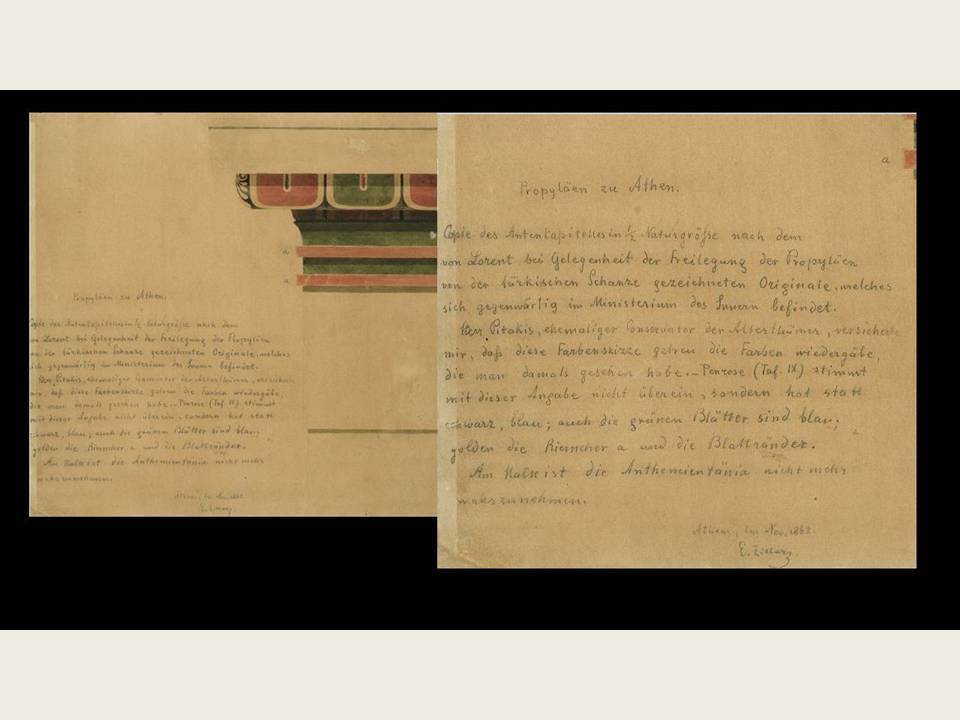 a
a
Propyläen zu Athen.
Copie des Antenkapitells in ½ Naturgröße nach dem
von Lorent bei Gelegenheit der Freilegung der Propyläen
von der türkischen Schanze gezeichneten Originale, welches
sich gegenwärtig im Ministerium des Innern befindet.
Herr Pitakis, ehemaliger Conservator der Alterthümer, versicherte
mir, daß diese Farbenskizze getreu die Farben wiedergäbe,
die man damals gesehen habe. – Penrose (Taf. IX) stimmt
mit dieser Angabe nicht überein, sondern hat statt
schwarz, blau; auch die grünen Blätter sind blau;
golden die Riemchen a und die Blattränder.
Am Halse ist die Anthemientänia nicht mehr
wahrzunehmen.
Athen, im Nov.
E. Ziller.
a
Propyläen zu Athen.
Copie des Antenkapitells in ½ Naturgröße nach dem
von Lorent bei Gelegenheit der Freilegung der Propyläen
von der türkischen Schanze gezeichneten Originale, welches
sich gegenwärtig im Ministerium des Innern befindet.
Herr Pitakis, ehemaliger Conservator der Alterthümer, versicherte
mir, daß diese Farbenskizze getreu die Farben wiedergäbe,
die man damals gesehen habe. – Penrose (Taf. IX) stimmt
mit dieser Angabe nicht überein, sondern hat statt
schwarz, blau; auch die grünen Blätter sind blau;
golden die Riemchen a und die Blattränder.
Am Halse ist die Anthemientänia nicht mehr
wahrzunehmen.
Athen, im Nov.
E. Ziller.